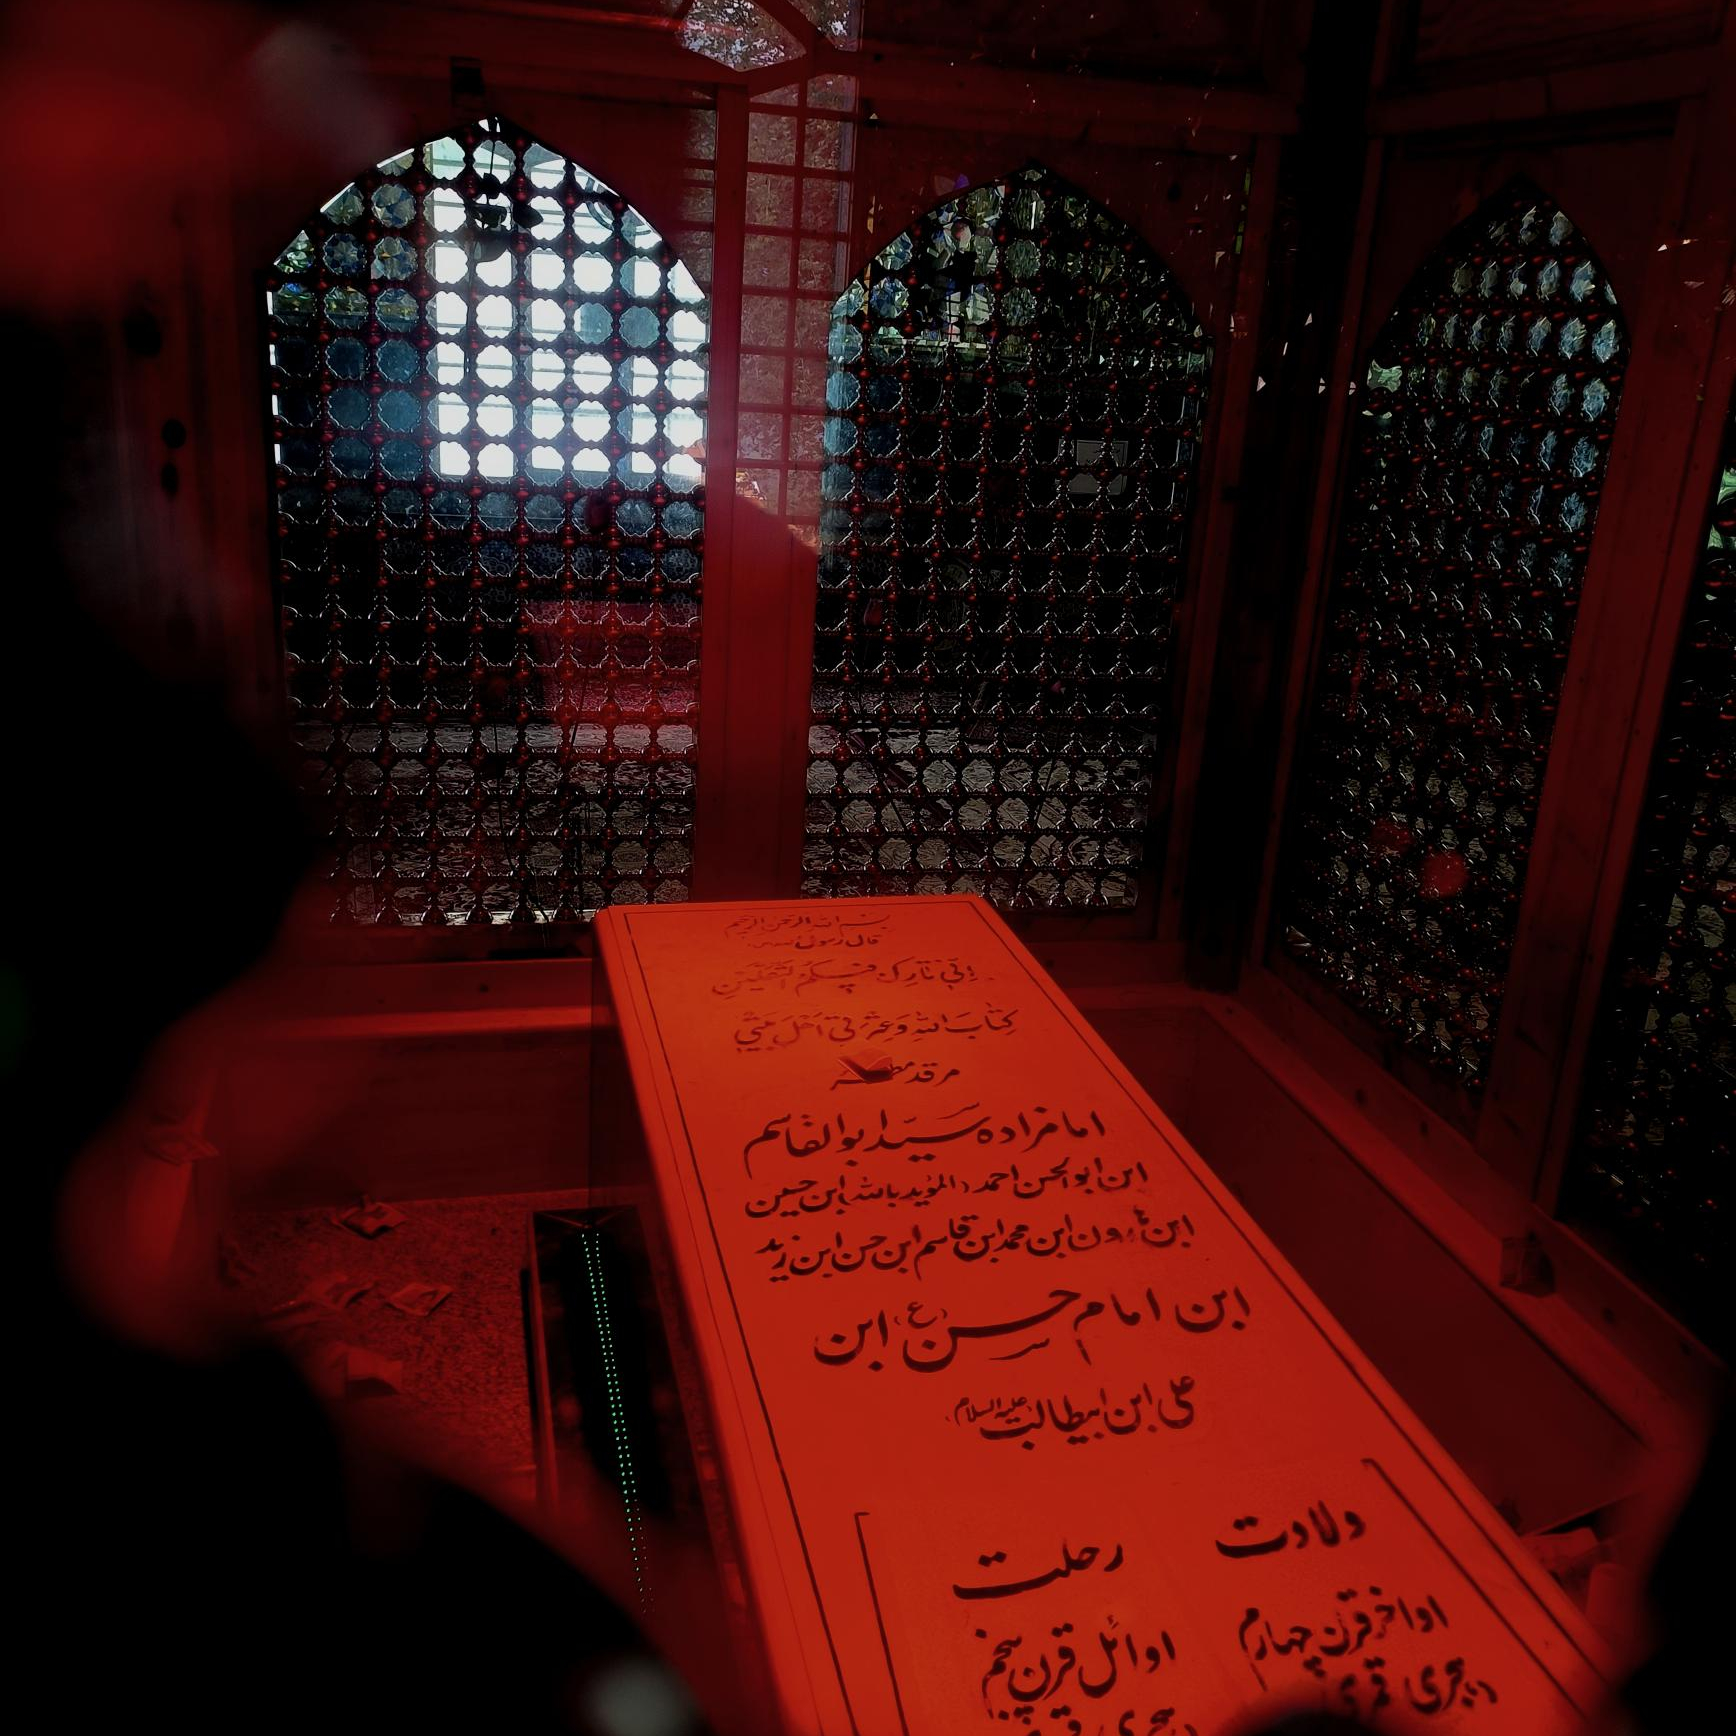 بسم الله الرحمن الرحیم
قال رسول الله
اِنّی تٰارِکٌ فیکُمُ الثَّقَلَیْنِ
کِتٰابَ اللهِ وَعِتْرَتی اَهْلَ بَیْتی
مرقد مطهر
امامزاده سیّد ابوالقاسم
ابن ابوالحسن احمد (المؤید بالله) ابن حسین
ابن هارون ابن محمد ابن قاسم ابن حسن ابن زید
ابن امام حسن (ع) ابن
علی ابن ابیطالب علیه السلام
ولادت
اواخر قرن چهارم
هجری قمری
رحلت
اوائل قرن پنجم
هجری قمری